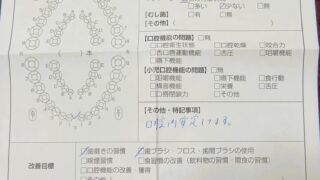 □多い ☑少ない □無
【むし歯】 □有 □無
【その他】（
【口腔機能の問題】□無
□口腔衛生状態 □口腔乾燥 □咬合力
□舌口唇運動機能 □舌圧 □咀嚼機能
□嚥下機能
【小児口腔機能の問題】□無
□咀嚼機能 □嚥下機能 □食行動
□構音機能 □栄養 □舌圧
□口唇閉鎖力 □その他
（ ）本
【その他・特記事項】
口腔内安定してます。
改善目標
☑歯磨きの習慣 ☑歯ブラシ・フロス・歯間ブラシの使用
□喫煙習慣 □食習慣の改善（飲料物の習慣・間食の習慣）
□口腔機能の改善・獲得
□その他（